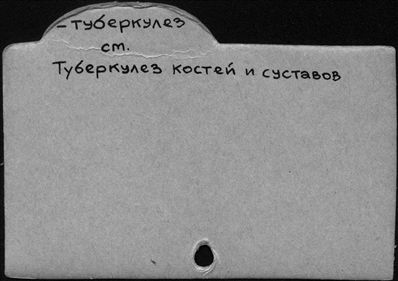 -туберкулез
см.
Туберкулез костей и суставов